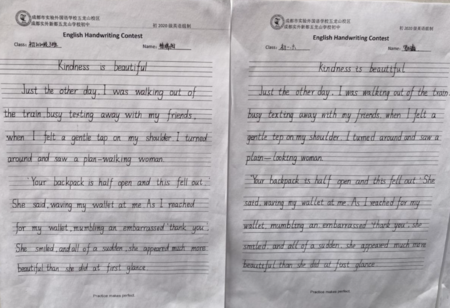 English Handwriting Contest
Class:
Name:
Kindness is beautiful
Just the other day, I was walking out of
the train busy texting away with my friends,
when I felt a gentle tap on my shoulder I turned
around and saw a plan-walking woman.
"Your backpack is half open and this fell out.
She said, waving my wallet at me. As I reached
for my wallet, mumbling an embarrassed "thank you".
She smiled, and all of a sudden, she appeared much more
beautiful than she did at first glance
English Handwriting Contest
Class:
Name:
Kindness is beautiful
Just the other day, I was walking out of the train
busy texting away with my friends, when I felt a
gentle tap on my shoulder I turned around and saw a
plain-looking woman.
"Your backpack is half open and this fell out. She
said, waving my wallet at me. As I reached for my
wallet, mumbling an embarrassed "thank you", she
smiled and all of a sudden, she appeared much more
beautiful than she did at first glance